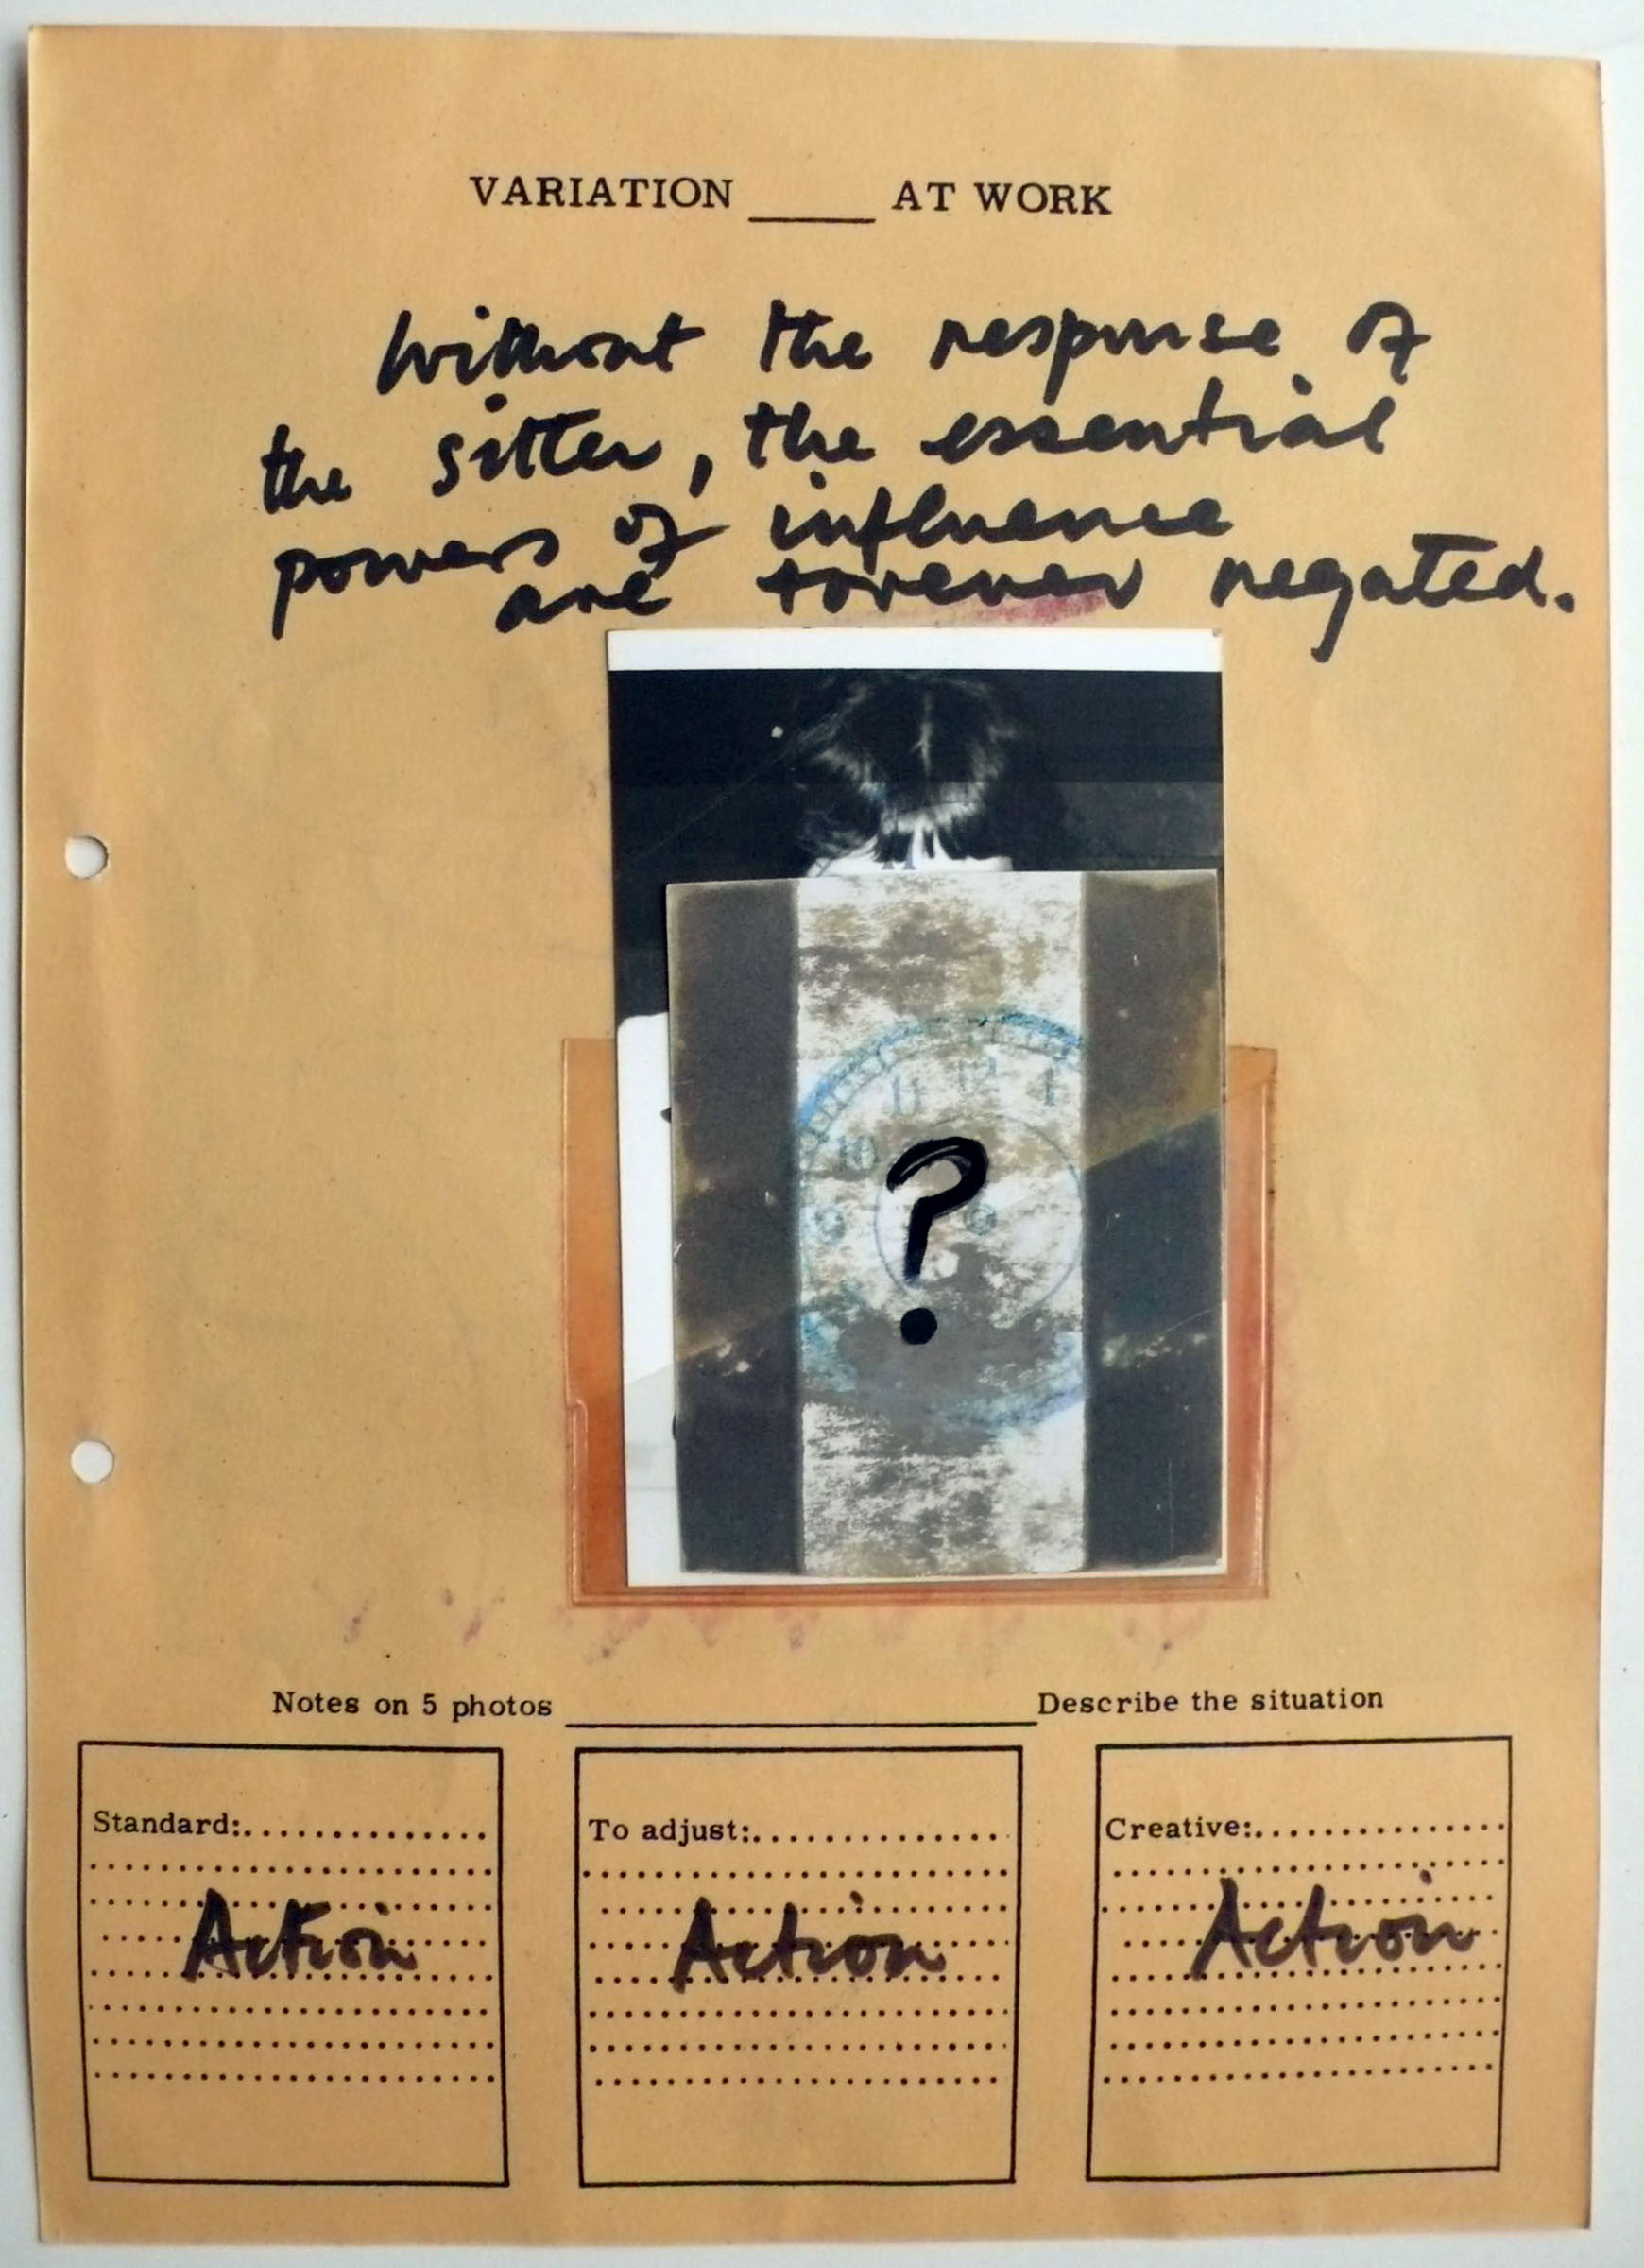 VARIATION ____ AT WORK
Without the response of
the sitter, the essential
powers of influence
are forever negated.
11 12 1
10
9
?
Notes on 5 photos ____________________ Describe the situation
Standard:..............
Action
To adjust:..............
Action
Creative:..............
Action